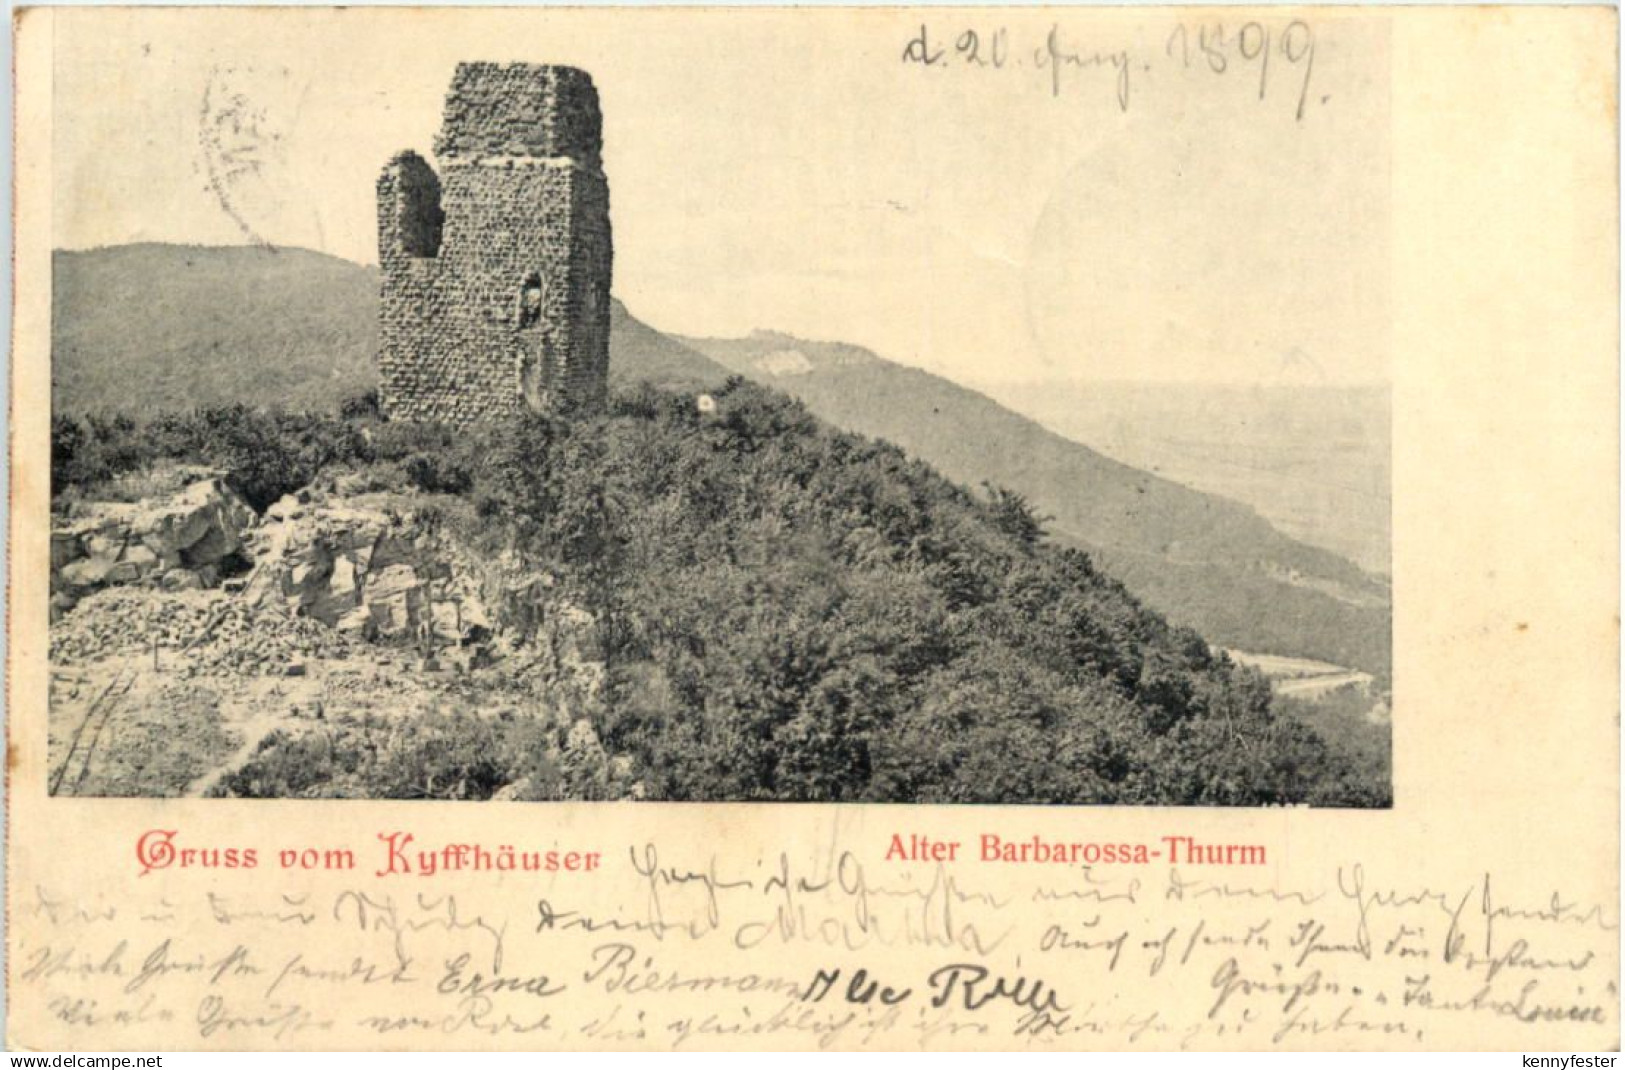 d. 20. Aug. 1899.
Gruss vom Kyffhäuser
Alter Barbarossa-Thurm
Herzliche Grüße aus dem Harz sendet
Dir u. Frau Schulz Deine Martha
Auch ich sende Ihnen die besten
Grüße. "Tante Louise"
Viele Grüße sendet Erna Biermann Ilse
Viele Grüße von die glücklich ist ihre Martha zu haben.
www.delcampe.net
kennyfester